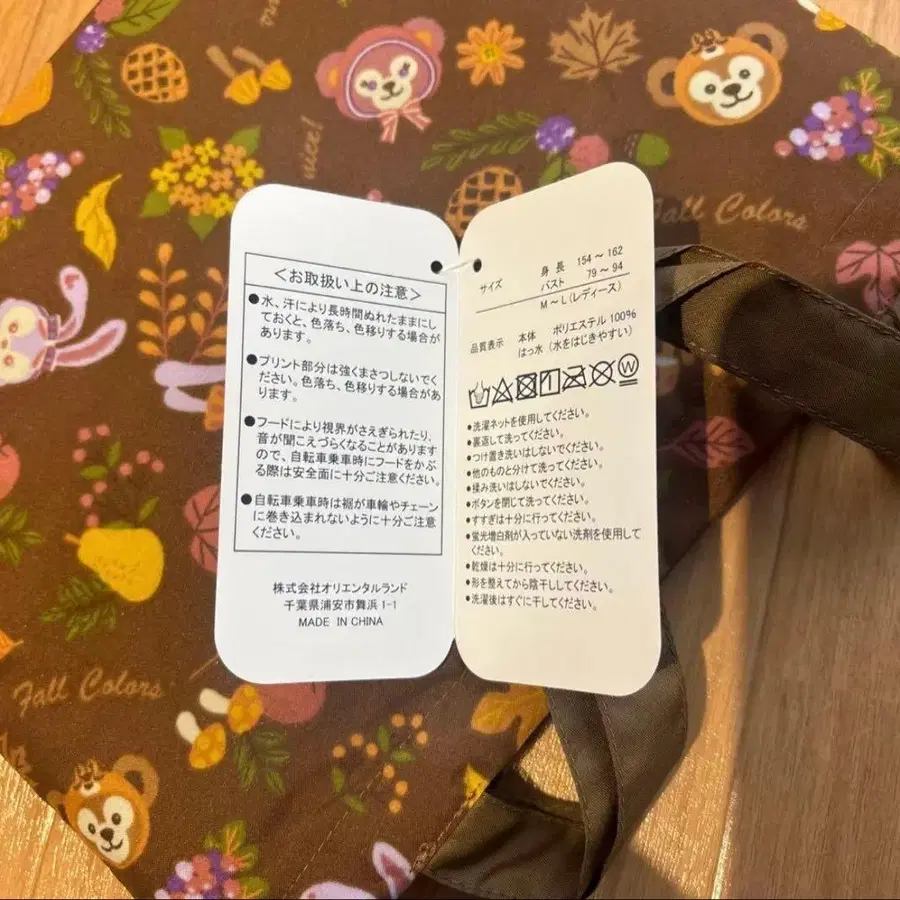 nice!
Fall Colors
<お取扱い上の注意>
●水、汗により長時間ぬれたままにし
ておくと、色落ち、色移りする場合が
あります。
●プリント部分は強くまさつしないでく
ださい。色落ち、色移りする場合があ
ります。
●フードにより視界がさえぎられたり、
音が聞こえづらくなることがあります
ので、自転車乗車時にフードをかぶ
る際は安全面に十分ご注意ください。
●自転車乗車時は裾が車輪やチェーン
に巻き込まれないように十分ご注意
ください。
株式会社オリエンタルランド
千葉県浦安市舞浜1-1
MADE IN CHINA
サイズ 身長 154～162
バスト 79～94
M～L(レディース)
品質表示 本体 ポリエステル100%
はっ水 (水をはじきやすい)
W
●洗濯ネットを使用してください。
●裏返して洗ってください。
●つけ置き洗いはしないでください。
●他のものと分けて洗ってください。
●揉み洗いはしないでください。
●ボタンを閉じて洗ってください。
●すすぎは十分に行ってください。
●蛍光増白剤が入っていない洗剤を使用して
ください。
●乾燥は十分に行ってください。
●形を整えてから陰干ししてください。
●洗濯後はすぐに干してください。
Fall Colors